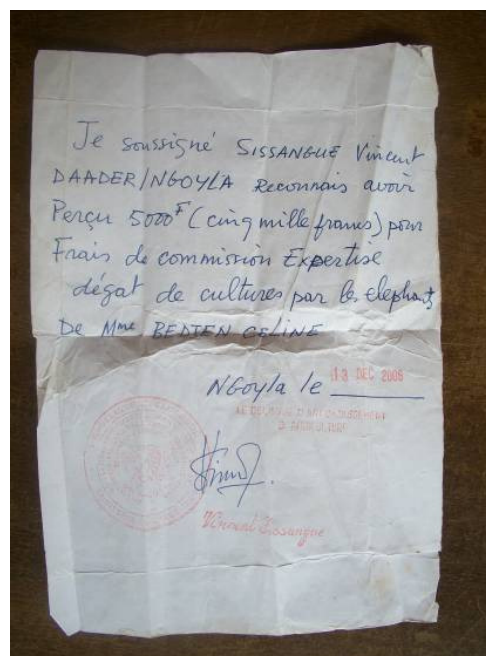 Je soussigné SISSANGUE Vincent
DAADER/NGOYLA Reconnais avoir
Perçu 5000F (cinq mille francs) pour
Frais de commission Expertise
dégat de cultures par les elephants
De Mme BEDIEN CELINE
NGOYLA le 13 DEC 2006
D'AGRICULTURE
Vincent Sissangue